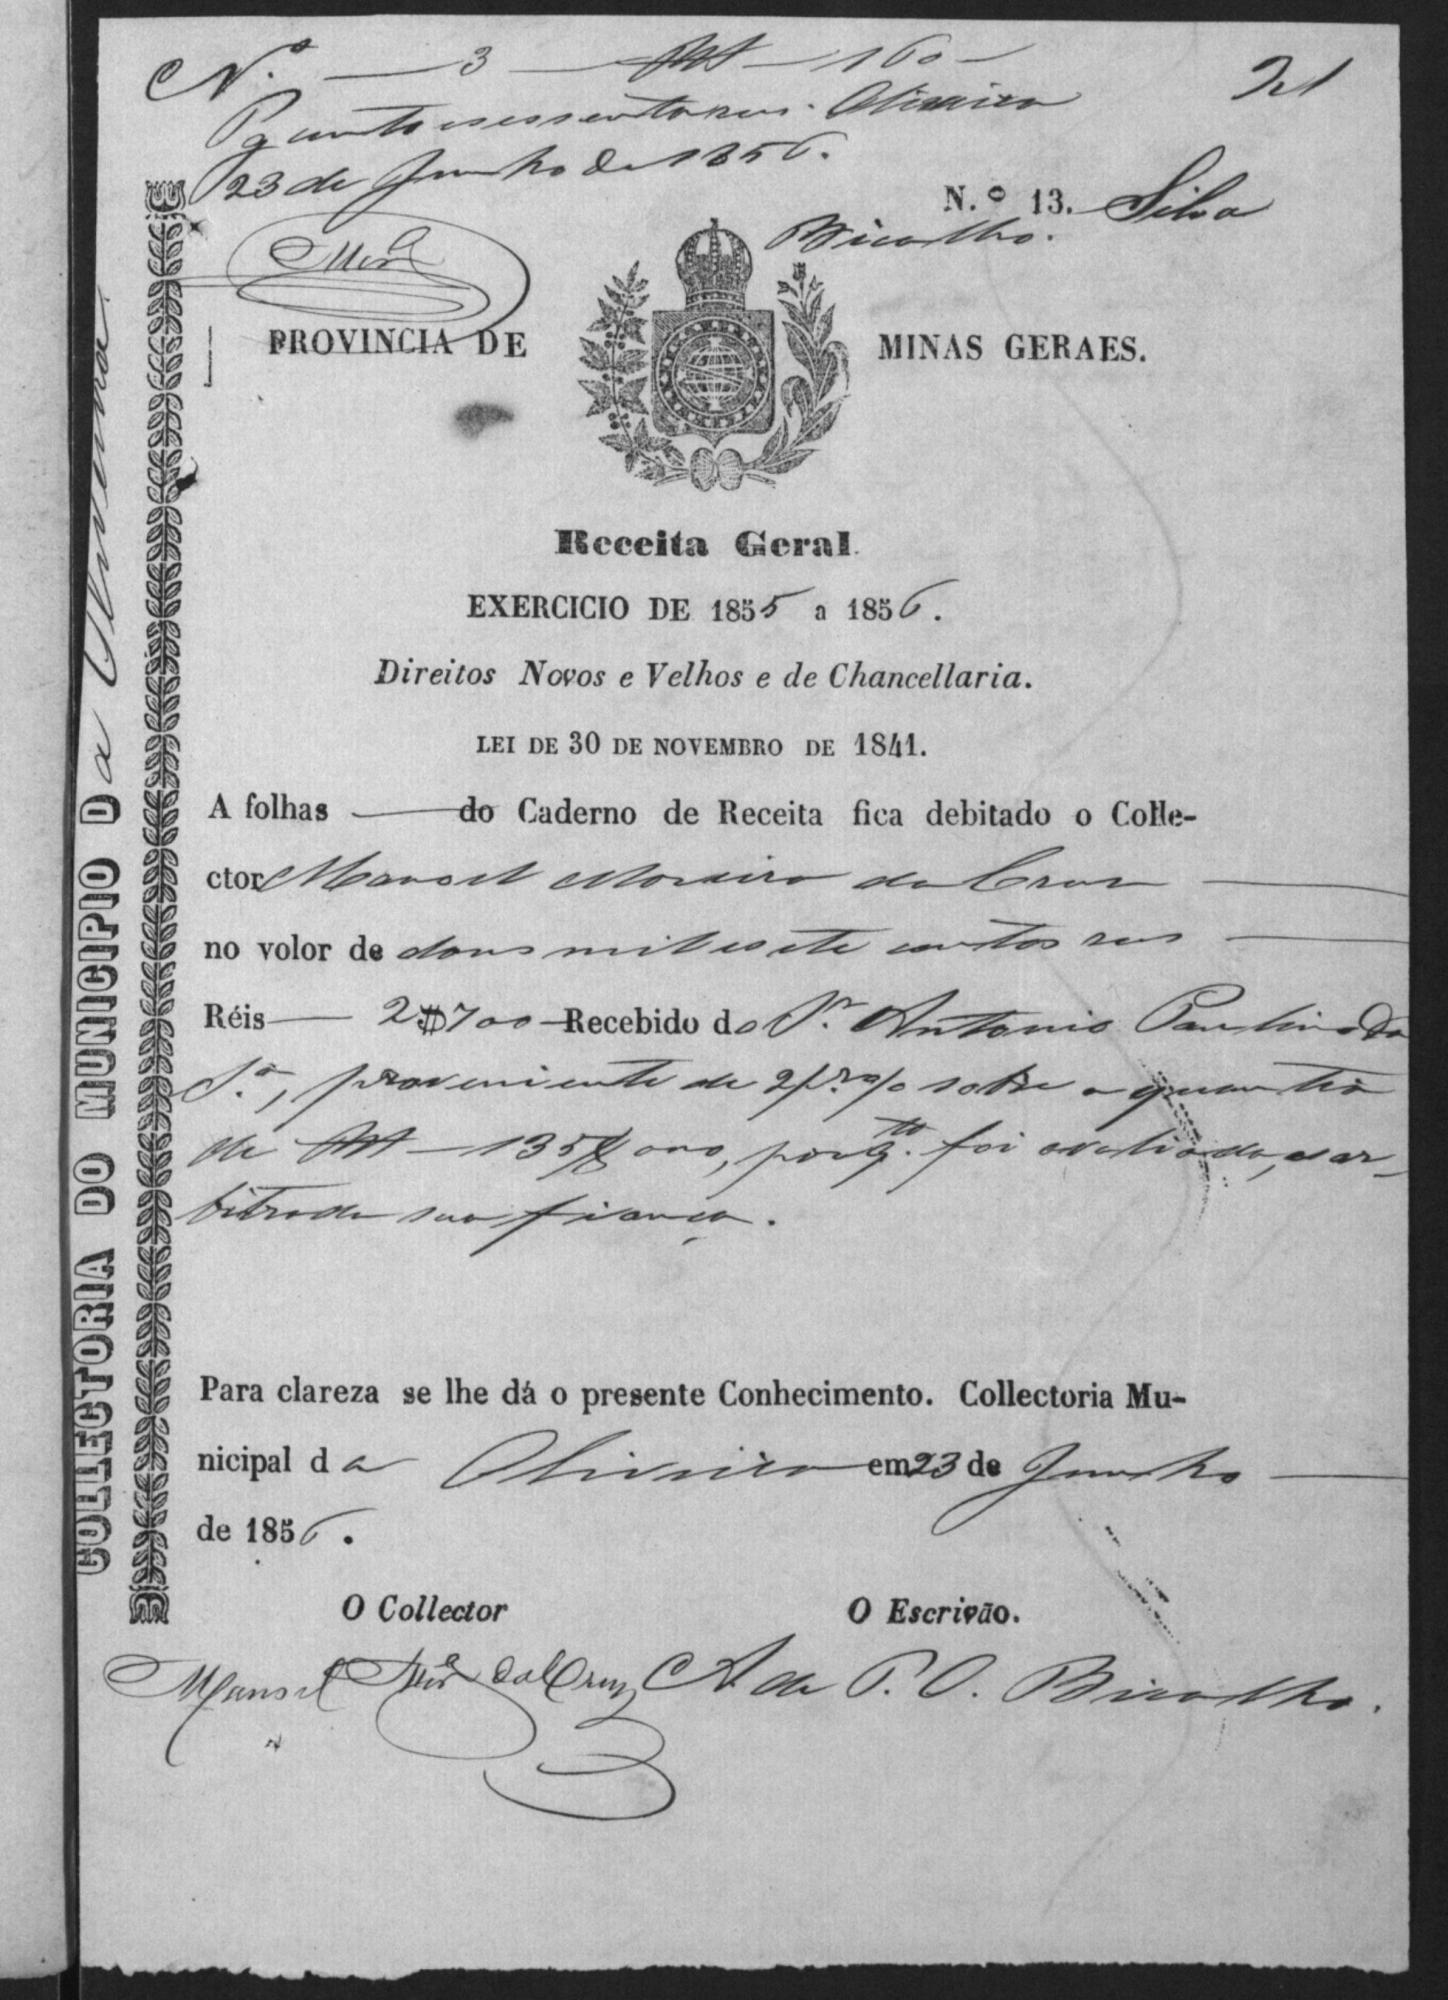 N.º — 3 — — 160 —
21
Pg cento e sessenta reis. Oliveira
23 de Junho de 1856.
N.º 13. Silva
Bicalho.
Mor.ª
PROVINCIA DE MINAS GERAES.
Receita Geral.
EXERCICIO DE 1855 a 1856.
Direitos Novos e Velhos e de Chancellaria.
LEI DE 30 DE NOVEMBRO DE 1841.
A folhas — do Caderno de Receita fica debitado o Colle-
ctor Manoel Moreira da Cruz
no volor de dous mil e sete centos reis
Réis — 2$700 — Recebido do Sr. Antonio Paulino da
S.ª, proveniente de 2 pr. % sobre a quantia
de — 135$000, porq.to foi avaliada, e ar-
bitrada sua fiança.
Para clareza se lhe dá o presente Conhecimento. Collectoria Mu-
nicipal da Oliveira em 23 de Junho
de 1856.
O Collector O Escrivão.
Manoel Mor.ª da Cruz A de P. O. Bicalho.
COLLECTORIA DO MUNICIPIO Da Oliveira.